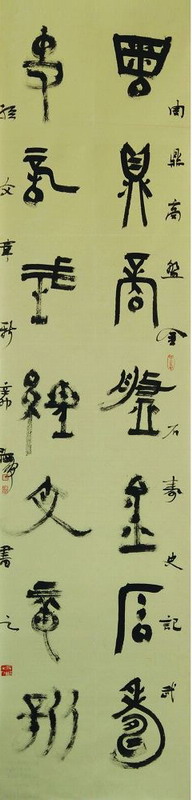 周鼎商盤金石壽史記武
周鼎商盤金石壽
史記武經文章新
經文章新辛卯書之